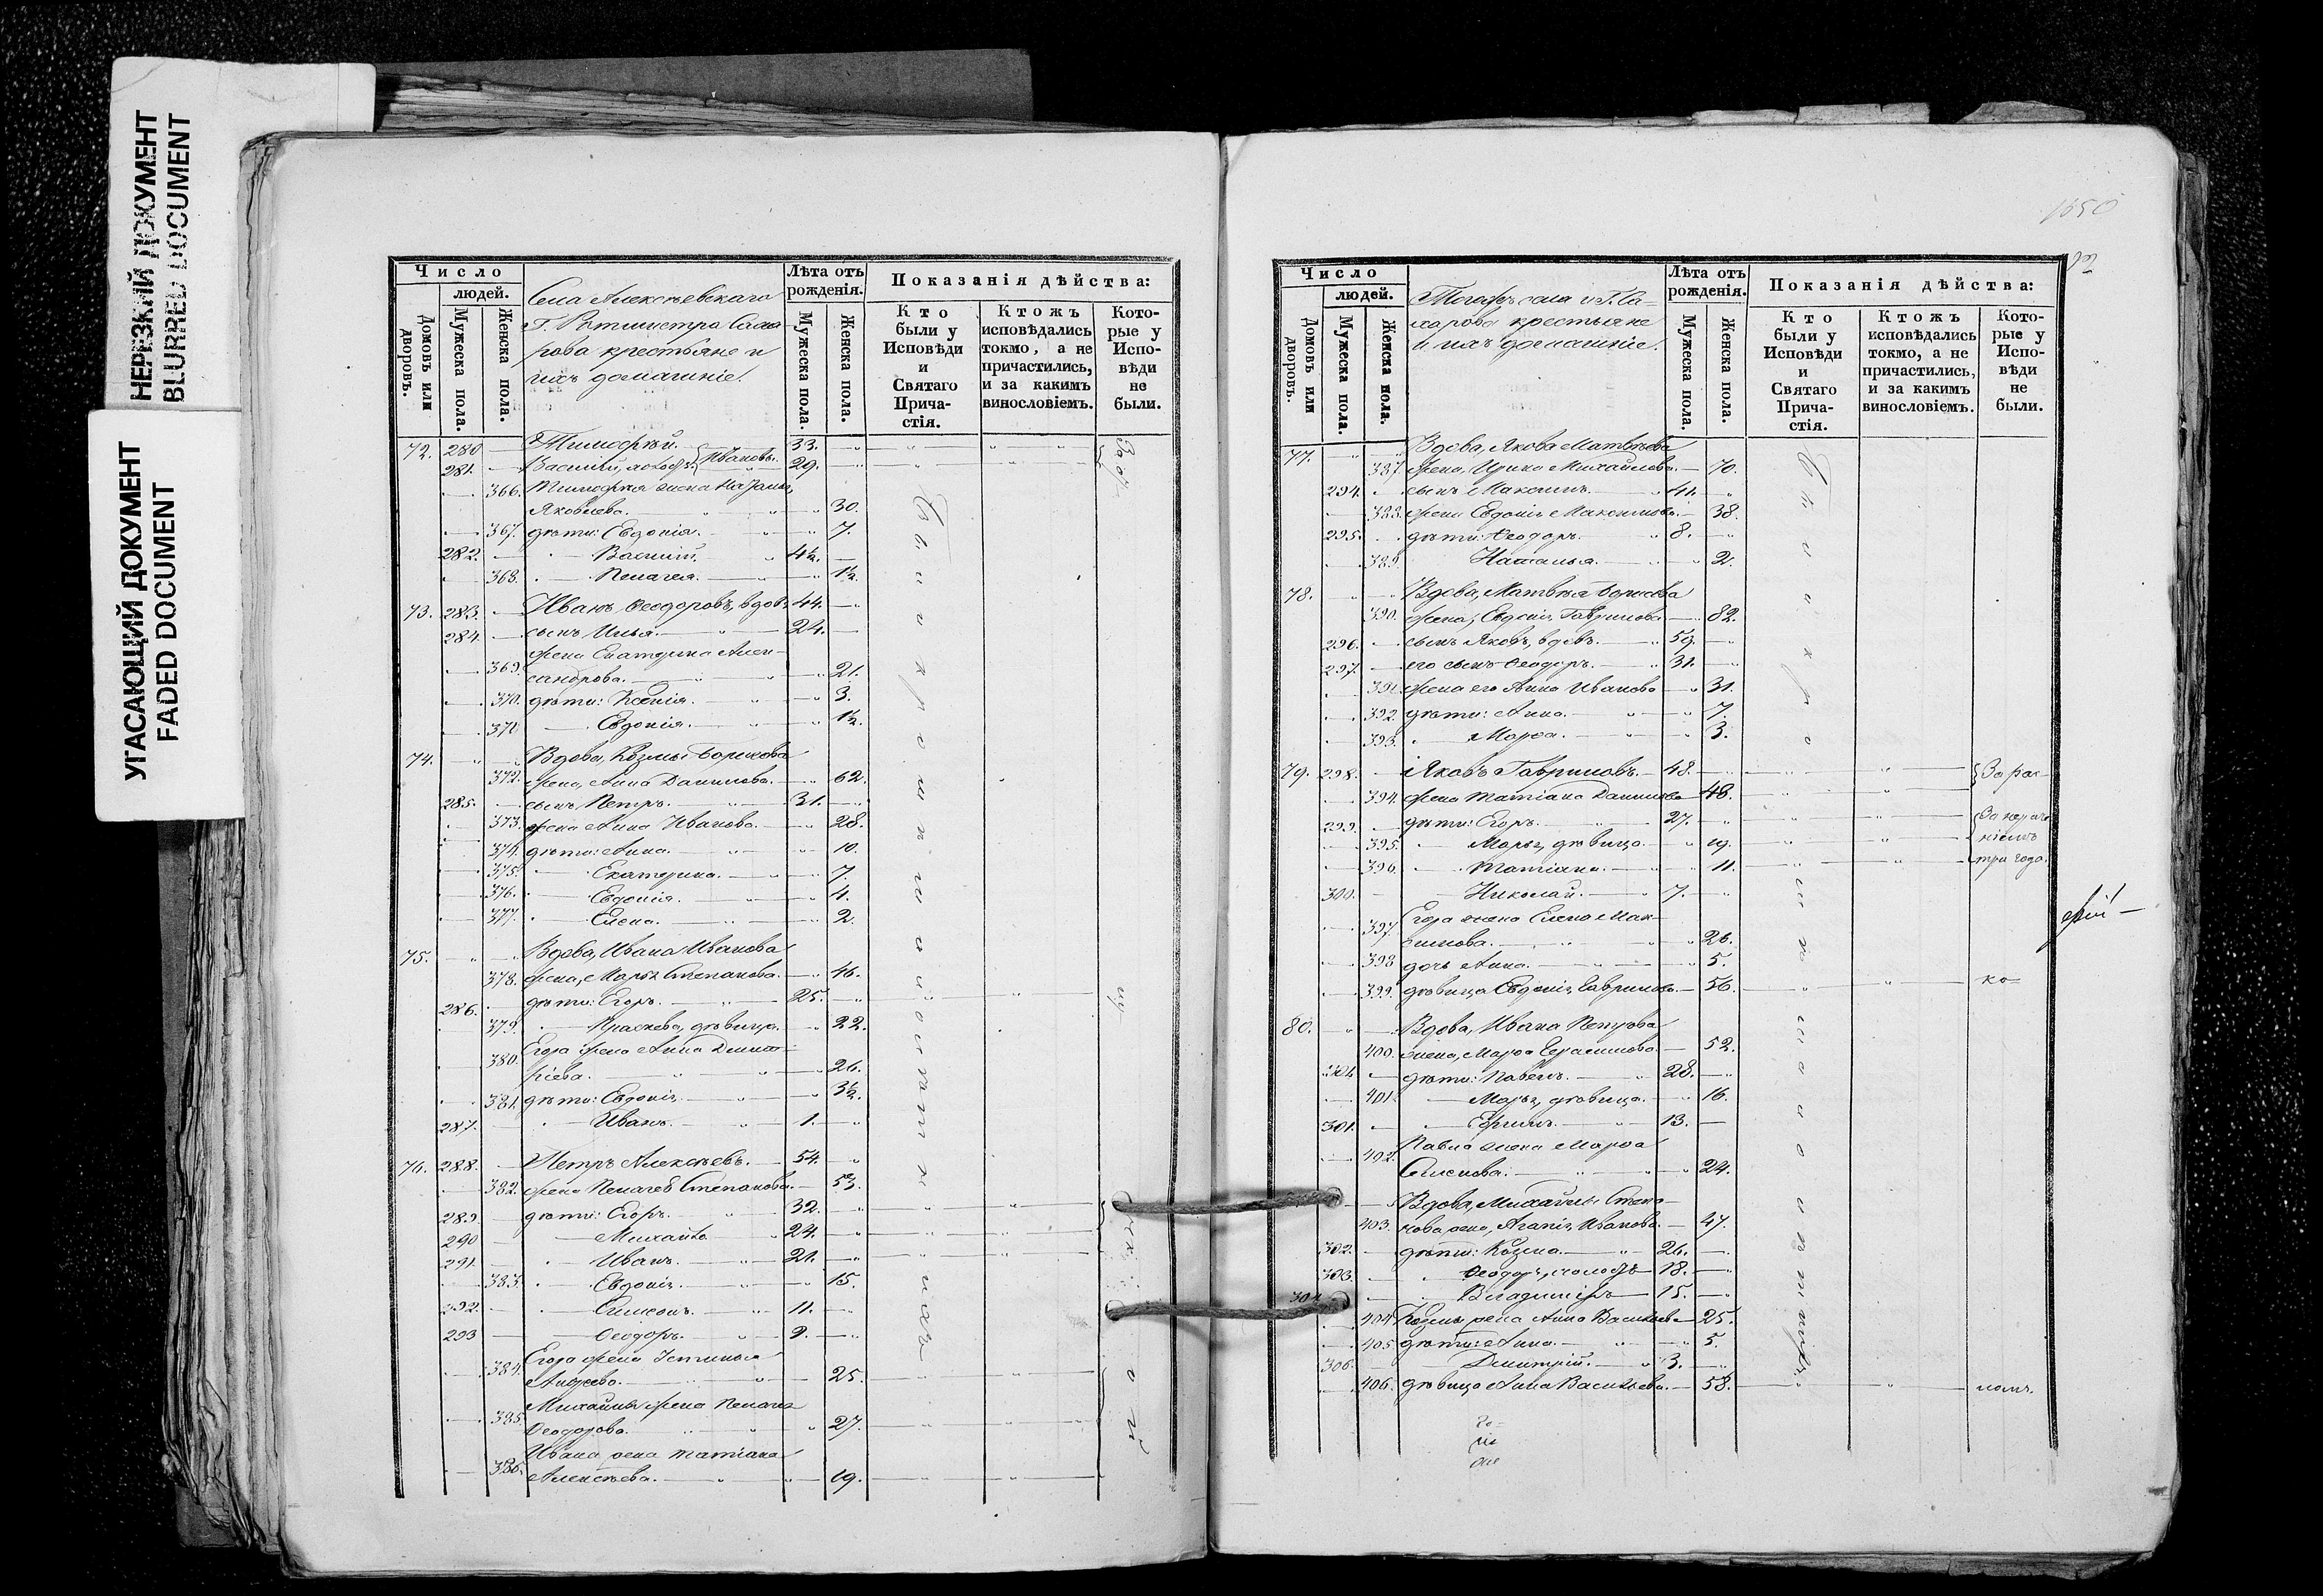 НЕРЕЗКИЙ ДОКУМЕНТ
BLURRED DOCUMENT
УГАСАЮЩИЙ ДОКУМЕНТ
FADED DOCUMENT
Число
людей.
Домовъ или дворовъ.
Мужеска пола.
Женска пола.
Села Алексѣевскаго
Г. Ротмистра Саха-
рова крестьяне и
ихъ домашніе.
Лѣта отъ рожденія.
Мужеска пола.
Женска пола.
Показанія дѣйства:
Кто были у Исповѣди и Святаго Прича- стія.
Ктожъ исповѣдались токмо, а не причастились, и за какимъ винословіемъ.
Кото- рые у Испо- вѣди не были.
72. 280 Тимофѣй. 33.
281. Василій, Ивановы. 29.
366. Тимофея жена Наталья
Яковлева. 30.
367. дѣти: Евдокія. 7.
282. Василій. 4½.
368. Пелагея. 1½.
73. 283. Иванъ Ѳеодоровъ, вдовъ 44.
284. сынъ Илья. 24.
369. жена Екатерина Алек-
сандрова. 21.
370. дѣти: Ксенія. 3.
371 Евдокія. 1½.
74. Вдова, Козмы Борисова
372. жена, Анна Данилова. 62.
285. сынъ Петръ. 31.
373. жена Анна Иванова. 28.
374. дѣти: Анна. 10.
375. Екатерина. 7.
376. Евдокія. 4.
377. Елена. 2.
75. Вдова, Ивана Иванова
378. жена, Марья Степанова. 46.
286. дѣти: Егоръ. 25.
379. Праскева, дѣвица. 22.
380. Егора жена Анна Димит-
ріева. 26.
381. дѣти: Евдокія 3½.
287. Иванъ. 1.
76. 288. Петръ Алексѣевъ. 54.
382. жена Пелагея Степанова. 53.
289. дѣти: Егоръ. 32.
290 Михайло 24.
291. Иванъ. 21.
383. Евдокія. 15.
292. Симеонъ. 11.
293 Ѳеодоръ. 9.
384. Егора жена Устинья
25.
385. Михайлы жена Пелагея
Ѳеодорова. 27.
386. Ивана жена Татіана
Алексѣева. 19.
1650
Число
людей.
Домовъ или дворовъ.
Мужеска пола.
Женска пола.
Тогожъ села и Г. Са-
харова крестьяне
и ихъ домашніе.
Лѣта отъ рожденія.
Мужеска пола.
Женска пола.
Показанія дѣйства:
Кто были у Исповѣди и Святаго Прича- стія.
Ктожъ исповѣдались токмо, а не причастились, и за какимъ винословіемъ.
Кото- рые у Испо- вѣди не были.
77. Вдова, Якова Матвѣева
387. жена, Ирина Михайлова. 70.
294. сынъ Максимъ. 41.
388. жена Евдокія Максимова. 38.
295. дѣти: Ѳеодоръ. 8.
389. Наталья. 2.
78. Вдова, Матвѣя Борисова
390. жена, Евдокія Гаврилова 82.
296. сынъ Яковъ, вдовъ. 59.
297. его сынъ Ѳеодоръ. 31.
391. жена его Анна Иванова 31.
392. дѣти: Анна. 7.
393. Марѳа. 3.
79. 298. Яковъ Гавриловъ. 48.
394. жена Татіана Данилова 48.
299. дѣти: Егоръ. 27.
395. Марья, дѣвица. 19.
396. Татіана. 11.
три года.
300. Николай. 7.
397. Егора жена Елена Мак-
симова. 26.
398 дочь Анна. 5.
399. дѣвица Евдокія Гаврилова. 56.
80. Вдова, Ивана Петрова
400. жена, Марѳа Герасимова. 52.
дѣти: Павелъ. 28.
401. Марья, дѣвица. 16.
301. 13.
402. Павла жена Марѳа
24.
Вдова, Михайлы Степа-
403. нова жена, Агапія Иванова. 47.
302. дѣти: Козма. 26.
303. Ѳеодоръ, 18.
304 Владиміръ 15.
404. Козмы жена Анна Васильева 25.
405 дѣти: Анна. 5.
306. Димитрій. 3.
406. дѣвица Анна Васильева. 58.